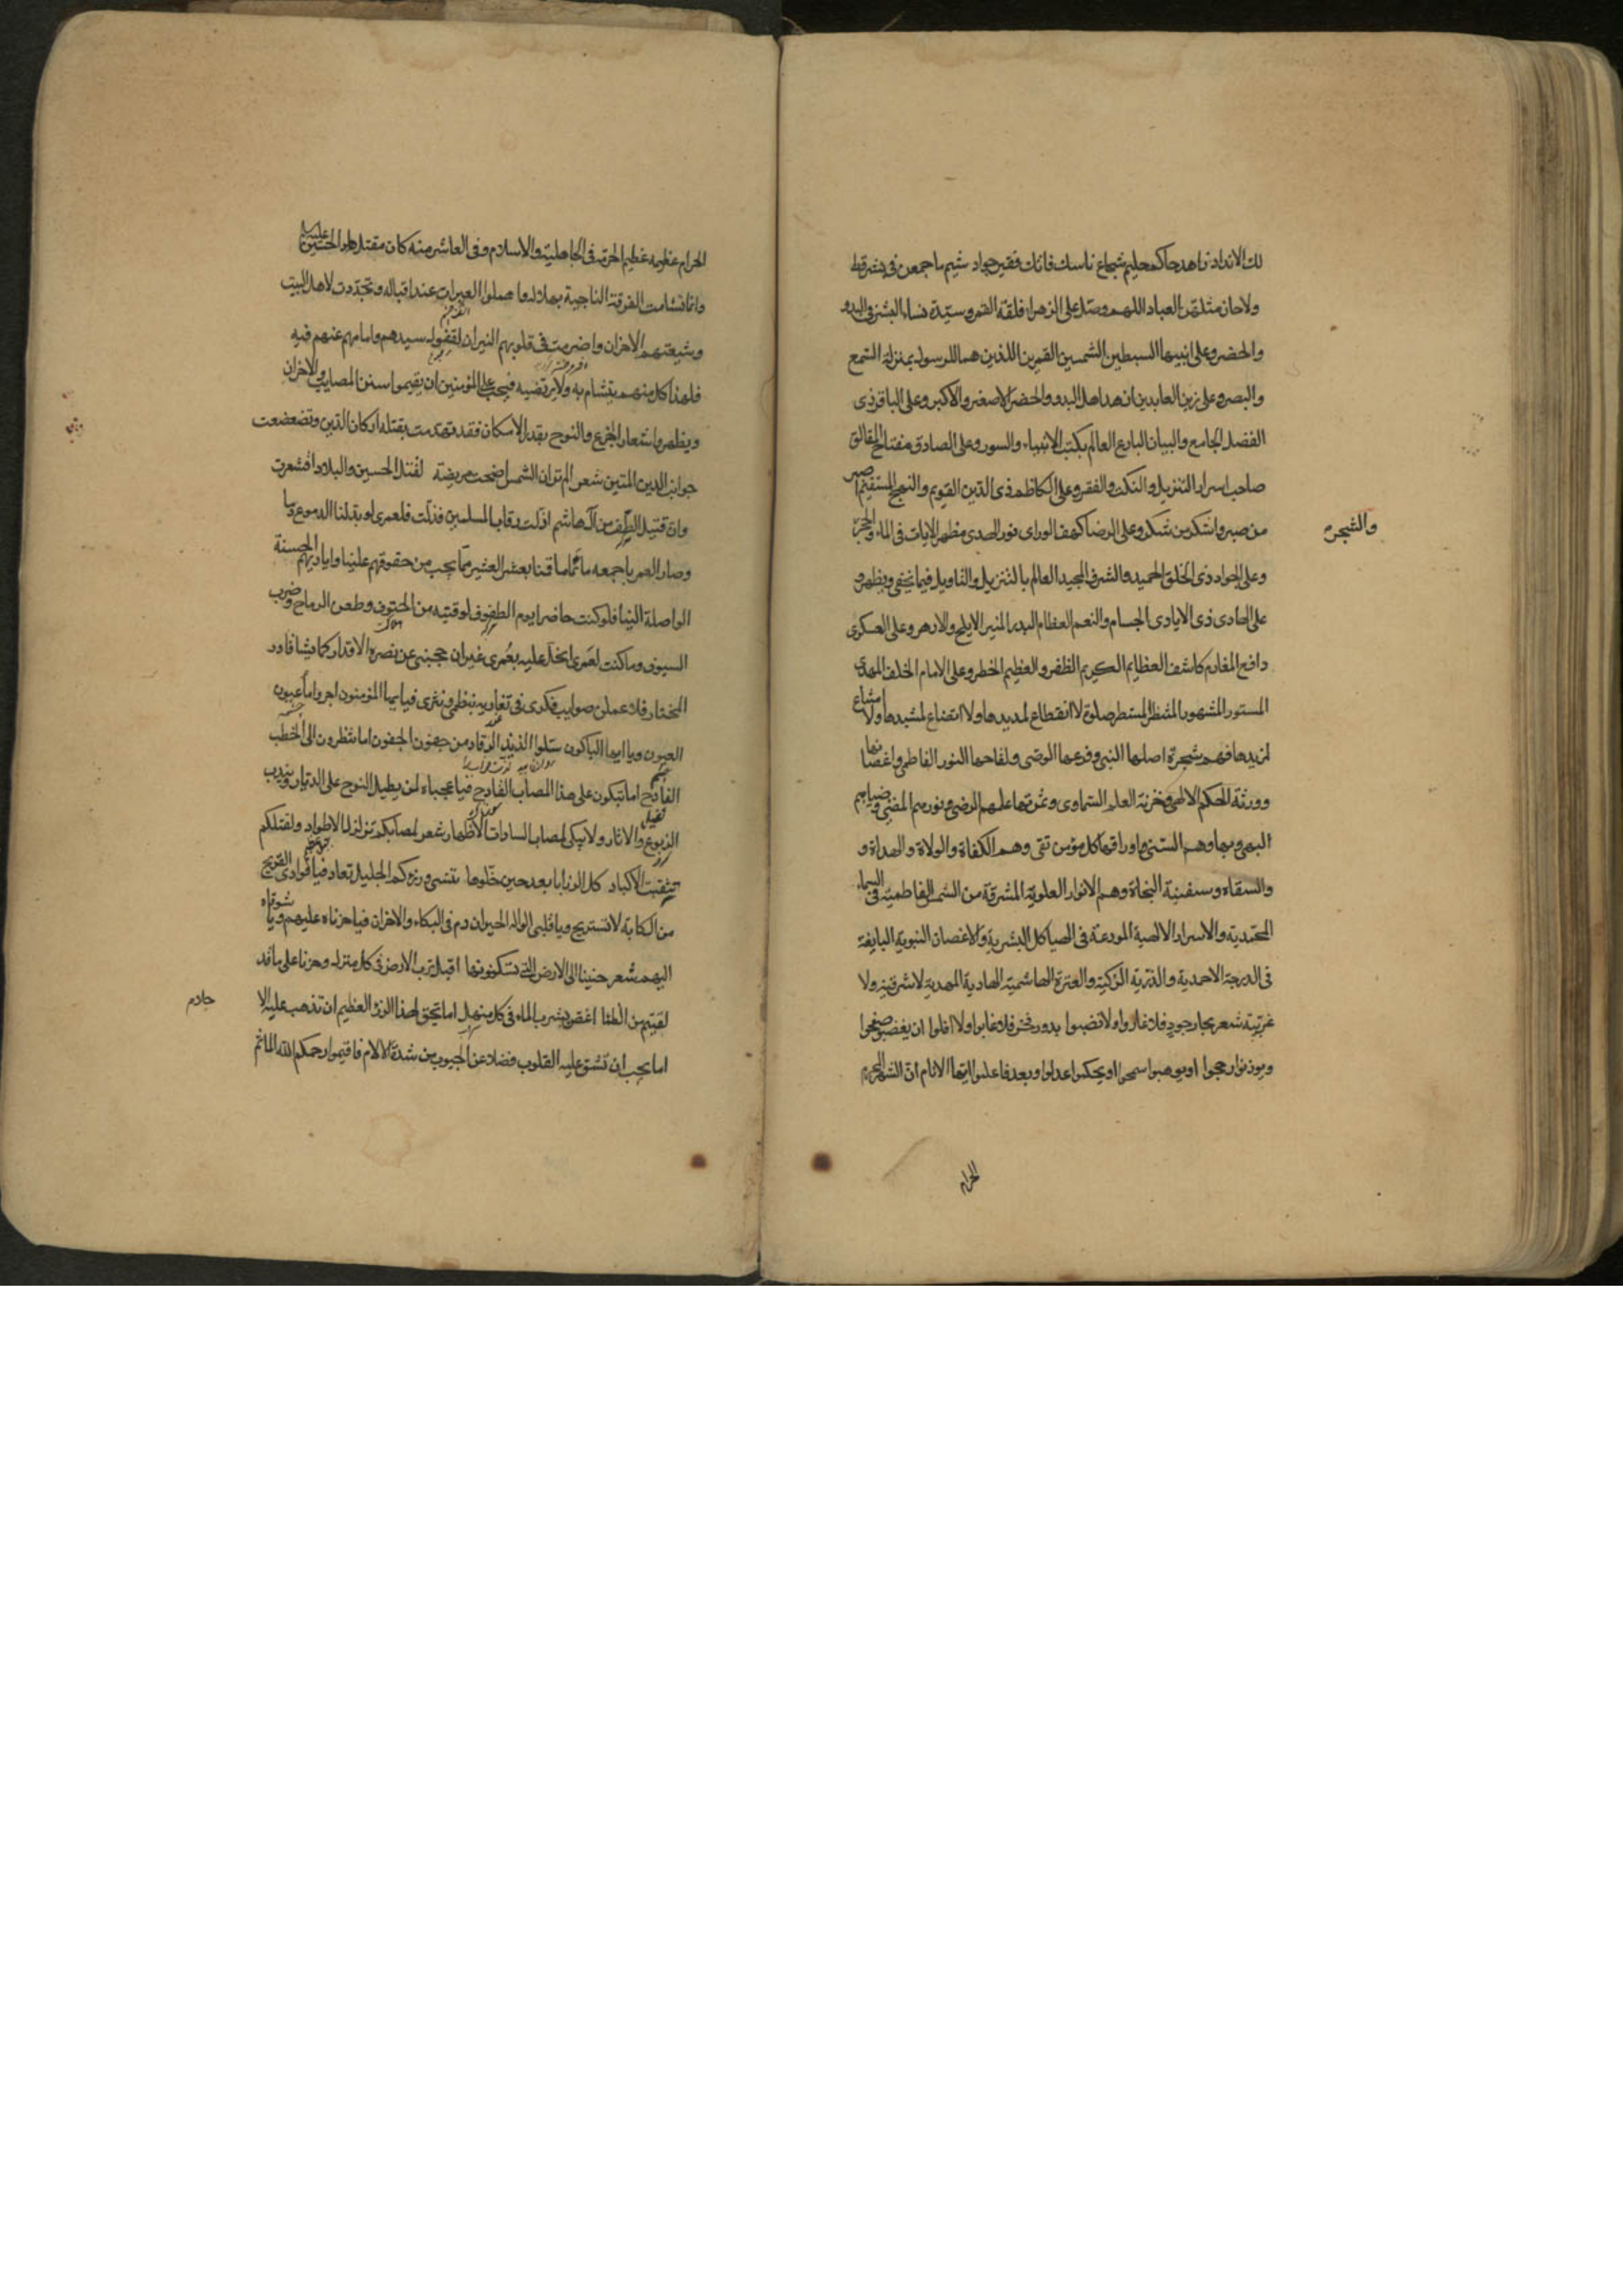 لك الانداد زاهد حاكم حليم شجاع ناسك فاتك فقير جواد شيم ما جمعن في بشر قط
ولا حاز مثلهن العباد اللهم وصل على الزهراء فلقة القمر وسيدة نساء البشر في البدو
والحضر وعلى ابنيها السبطين الشمسين القمرين اللذين هما للرسول بمنزلة السمع
والبصر وعلى زين العابدين ازهد اهل البدو والحضر الاصغر والاكبر وعلى الباقر ذي
الفضل الجامع والبيان البارع العالم بكتب الانبياء والسور وعلى الصادق مفتاح المقالق
صاحب اسرار التنزيل والنكت والفقر وعلى الكاظم ذي الدين القويم والنهج المستقيم اصبر
من صبر واشكر من شكر وعلى الرضا كهف الورى نور الهدى مظهر الايات في الماء والحجر
والشجر
وعلى الجواد ذي الخلق الحميد والشرف المجيد العالم بالتنزيل والتاويل فيما يخفى ويظهر و
على الهادي ذي الايادي الجسام والنعم العظام البدر المنير الابلج والازهر وعلى العسكري
دافع المغارم كاشف العظايم الكريم الظفر والعظيم الخطر وعلى الامام الخلف المهدي
المستور المشهور المنتظر المستطر صلوة لا انقطاع لمديدها ولا اتضاع لمشيدها ولا امتناع
لمزيدها فهم شجرة اصلها النبي وفرعها الوصي ولقاحها النور الفاطمي واغصانها
وورثة الحكم الالهي وخزنة العلم السماوي وثمرتها علمهم المرضي ونورهم المضيئ وضياءهم
البهي وبهاءهم السني واوراقها كل مؤمن تقي وهم الكفاة والولاة والهداة و
والسقاه وسفينة النجاة وهم الانوار العلوية المشرقة من الشمس الفاطمية في السماء
المحمدية والاسرار الالهية المودعة في الهياكل البشرية والاغصان النبوية اليانعة
في الدرجة الاحمدية والذرية الزكية والعترة الهاشمية الهادية المهدية لا شرقية ولا
غربية شعر بحار جود فلا غاروا ولا نضبوا بدور فخر فلا غابوا ولا افلوا ان يغضبوا صفحوا
ويوزنوا رجحوا او يوهبوا سمحوا او يحكموا عدلوا وبعد فاعلموا ايها الانام ان الشهر المحرم
الحرام
الحرام عظيمة عظيم الحرمة في الجاهلية والاسلام وفي العاشر منه كان مقتل الحسين عليه السلام
وانما تشامت الفرقة الناجية بهلاله وما هملوا العبرات عند اقباله وتجددت لاهل البيت
وشيعتهم الاحزان واضرمت في قلوبهم النيران لفقد سيدهم وامامهم عنهم فيه
فلهذا كل منهم يتشام به ولا يرتضيه فيجب على المؤمنين ان يقيموا سنن المصايب والاحزان
ويظهروا شعار الجزع والنوح بقدر الامكان فقد تهدمت بقتله اركان الدين وتضعضعت
جوانب الدين المتين شعر الم تر ان الشمس اضحت مريضة لقتل الحسين والبلاد اقشعرت
وان قتيل الطف من آل هاشم اذلت رقاب المسلمين فذلت فلعمري لو بدلنا الدموع دما
وصار العمر باجمعه ماتما ما قمنا بعشر العشير مما يجب من حقوقهم علينا واياديهم الحسنة
الواصلة الينا فلو كنت حاضرا يوم الطفوف لوقيته من الحتوف وطعن الرماح وضرب
السيوف وما كنت لعمري ابخل عليه بعمري غير ان حجبني عن نصره الاقدار كما يشا قادر
المختار فلاعملن صوايب فكري في تعازيه بنظمي ونثري فيا ايها المؤمنون اجروا ماء عيون
العيون ويا ايها الباكون سلوا لذيذ الرقاد من جفون الجفون اما تنظرون الى الخطب
الفادح اما تبكون على هذا المصاب الفادح فيا عجباه لمن يطيل النوح على الديار ويندب
الربوع والاثار ولا يبكي لمصاب السادات الاطهار شعر لمصابكم تزلزل الاطواد ولقتلكم
تتفتت الاكباد كل الرزايا بعد حين خلوها تنسى ورزءكم الجليل تعاد فيا فوادي القريح
من الكابة لا تستريح ويا قلبي الواله الحيران دم في البكاء والاحزان فيا حزناه عليهم ويا شوقاه
اليهم شعر حنينا الى الارض التي تسكنونها اقبل ترب الارض في كل منزل وحزنا على ما قد
لقيتم من الظما اغص بشرب الماء في كل منهل اما يحق لهذا الرزء العظيم ان تذهب عليه الا
اما يجب ان تشق عليه القلوب فضلا عن الجيوب من شدة الالام فاقيموا رحمكم الله الماتم